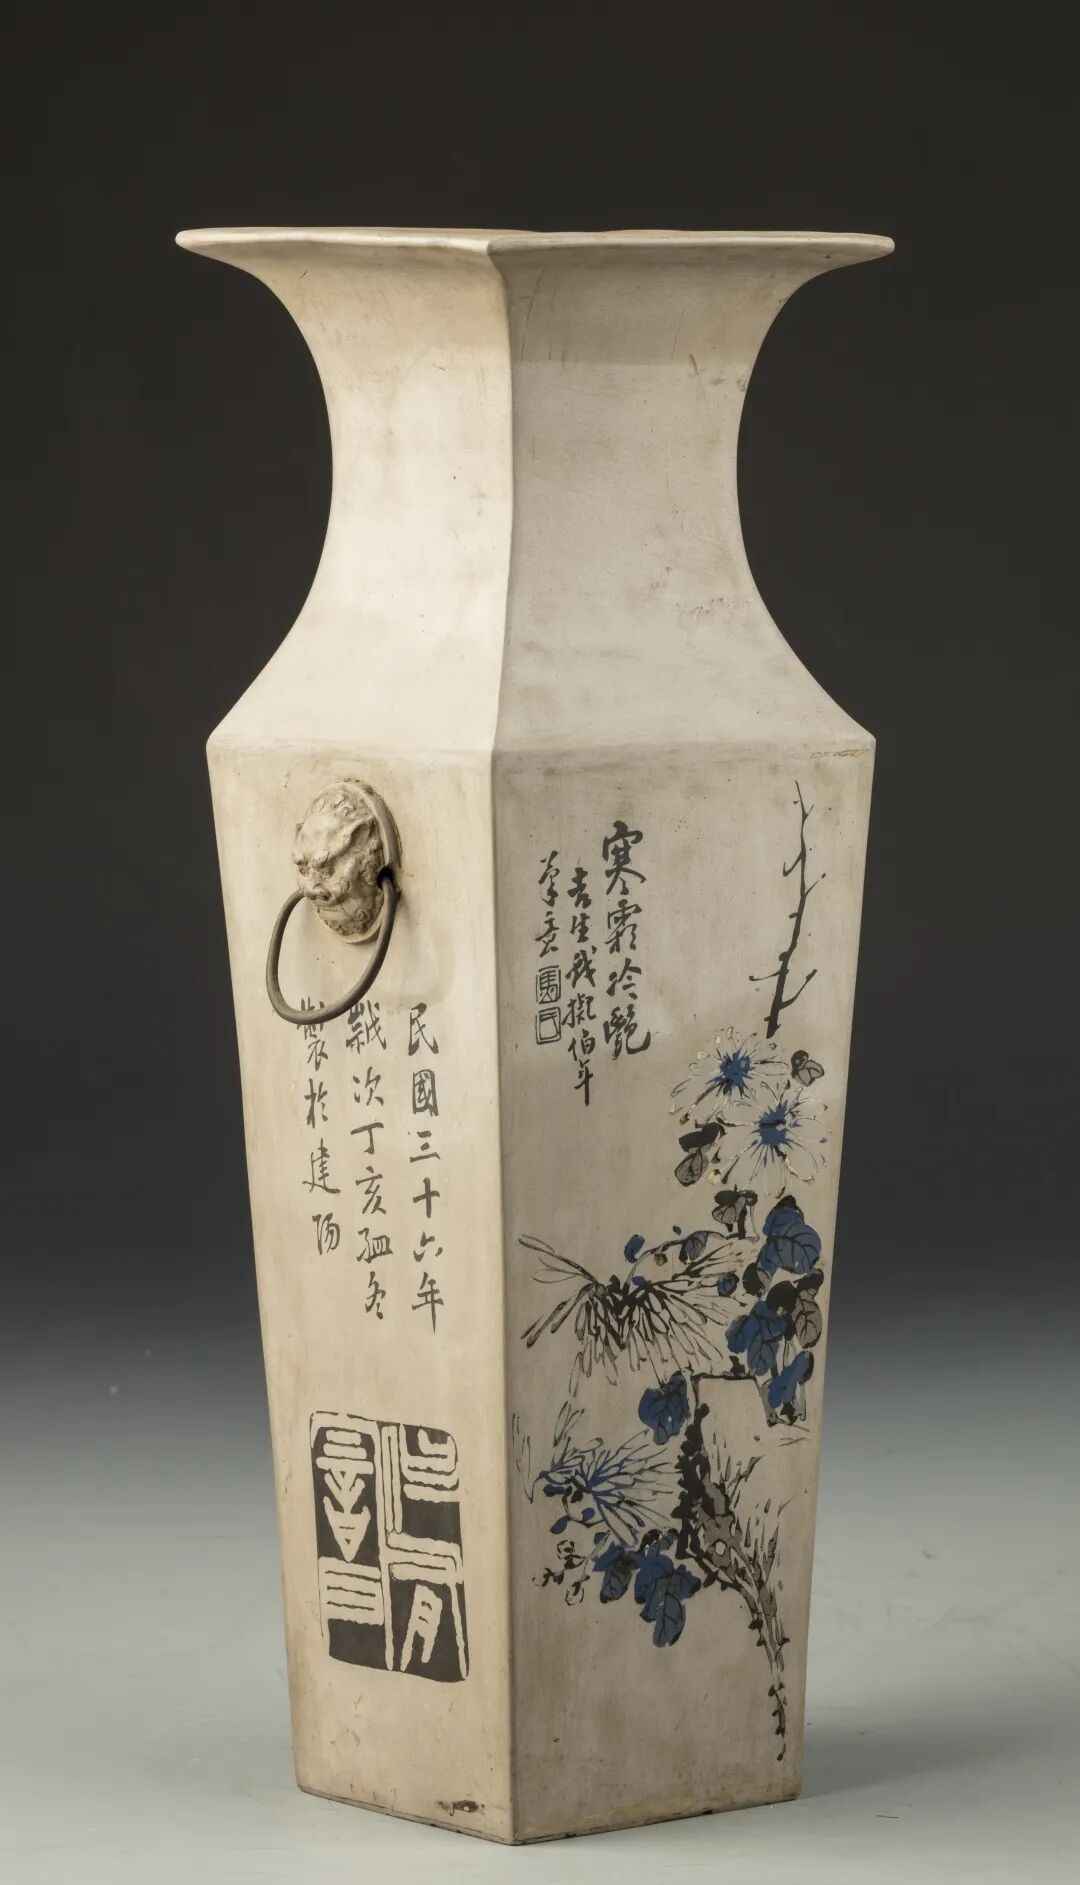 寒霜冷艷
吉生戲擬伯年
筆意
民國三十六年
歲次丁亥孟冬
製於建陽